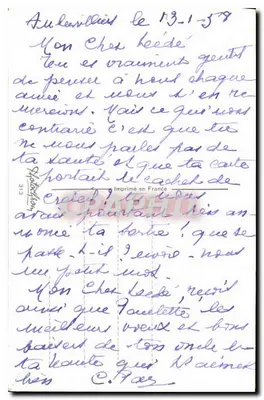 Aubervilliers le 13-1-58
Mon Cher Dédé
Tu es vraiment gentil
de penser à nous chaque
année et nous t'en re
mercions. Mais ce qui nous
contrarie c'est que tu
ne nous parles pas de
ta santé et que ta carte
portait le cachet de
Imprimé en France
nous
avais pourtant très an
noncé ta sortie! que se
passe-t-il? envoie-nous
un petit mot.
Mon Cher Dédé, reçois
ainsi que Paulette, les
meilleurs voeux et bons
baisers de ton oncle et
ta tante qui t'aiment
bien